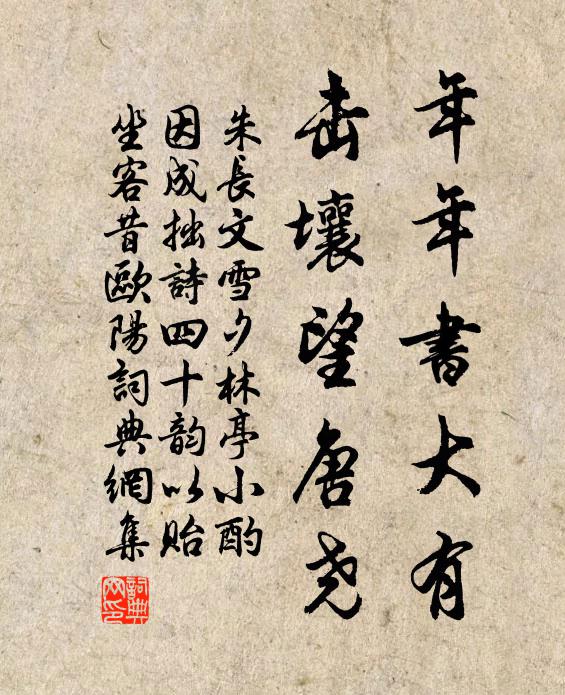 年年書大有
击壤望唐尧
朱長文雪夕林亭小酌
因成拙詩四十韵以貽
坐客昔歐陽詞典網集